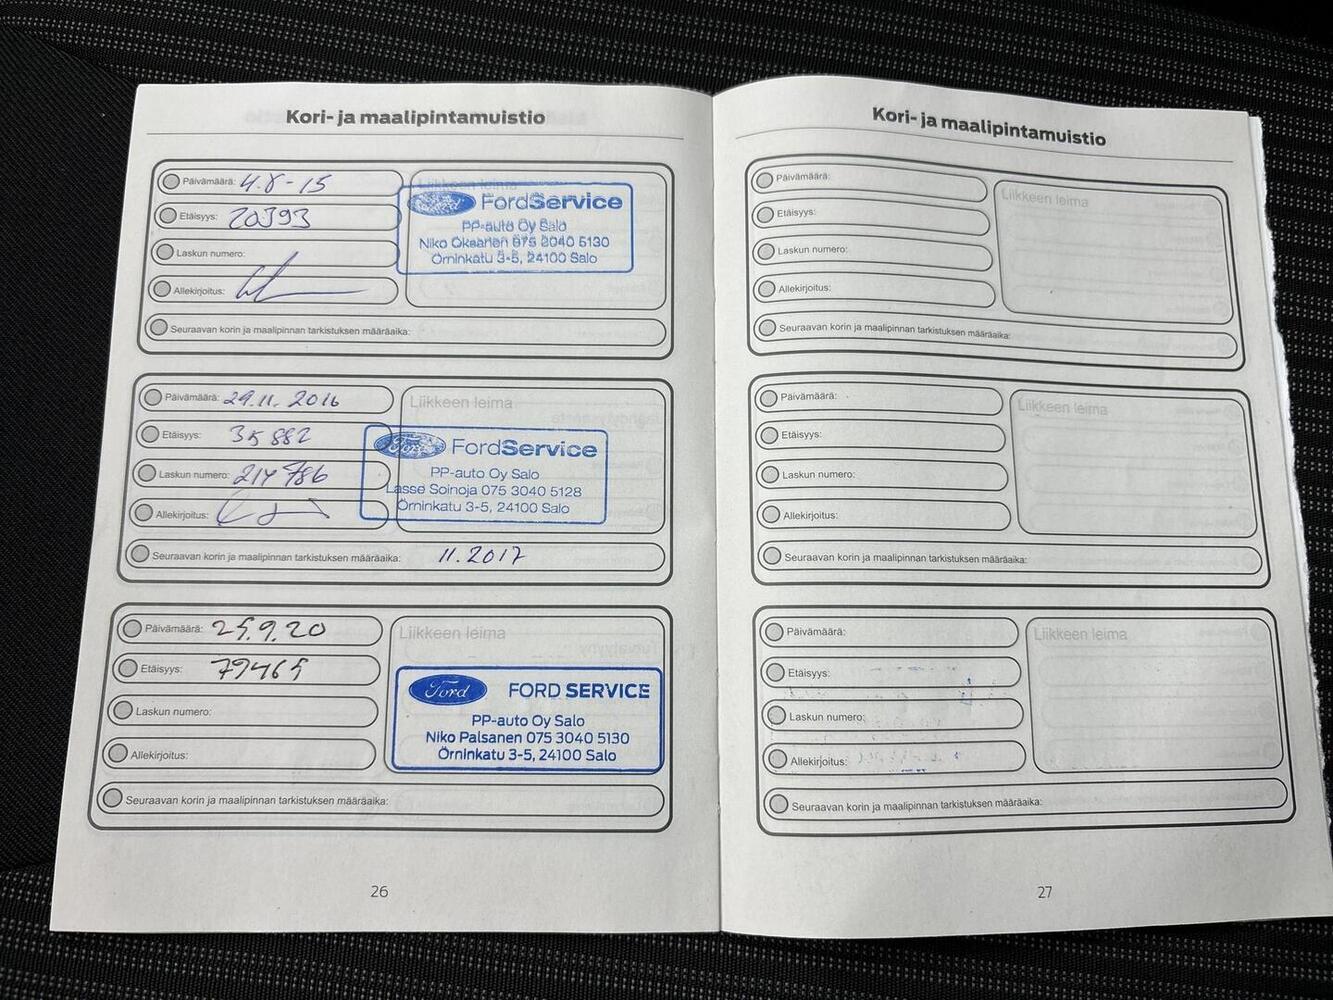 Kori- ja maalipintamuistio
Päivämäärä: 4.8-15
Etäisyys: 20393
Laskun numero:
Allekirjoitus:
Liikkeen leima
Ford FordService
PP-auto Oy Salo
Niko Oksanen 075 3040 5130
Örninkatu 3-5, 24100 Salo
Seuraavan korin ja maalipinnan tarkistuksen määräaika:
Päivämäärä: 29.11.2016
Etäisyys: 35882
Laskun numero: 214786
Allekirjoitus:
Liikkeen leima
Ford FordService
PP-auto Oy Salo
Lasse Soinoja 075 3040 5128
Örninkatu 3-5, 24100 Salo
Seuraavan korin ja maalipinnan tarkistuksen määräaika: 11.2017
Päivämäärä: 25.9.20
Etäisyys: 79465
Laskun numero:
Allekirjoitus:
Liikkeen leima
Ford FORD SERVICE
PP-auto Oy Salo
Niko Palsanen 075 3040 5130
Örninkatu 3-5, 24100 Salo
Seuraavan korin ja maalipinnan tarkistuksen määräaika:
26
Kori- ja maalipintamuistio
Päivämäärä:
Etäisyys:
Laskun numero:
Allekirjoitus:
Liikkeen leima
Seuraavan korin ja maalipinnan tarkistuksen määräaika:
Päivämäärä:
Etäisyys:
Laskun numero:
Allekirjoitus:
Liikkeen leima
Seuraavan korin ja maalipinnan tarkistuksen määräaika:
Päivämäärä:
Etäisyys:
Laskun numero:
Allekirjoitus:
Liikkeen leima
Seuraavan korin ja maalipinnan tarkistuksen määräaika:
27